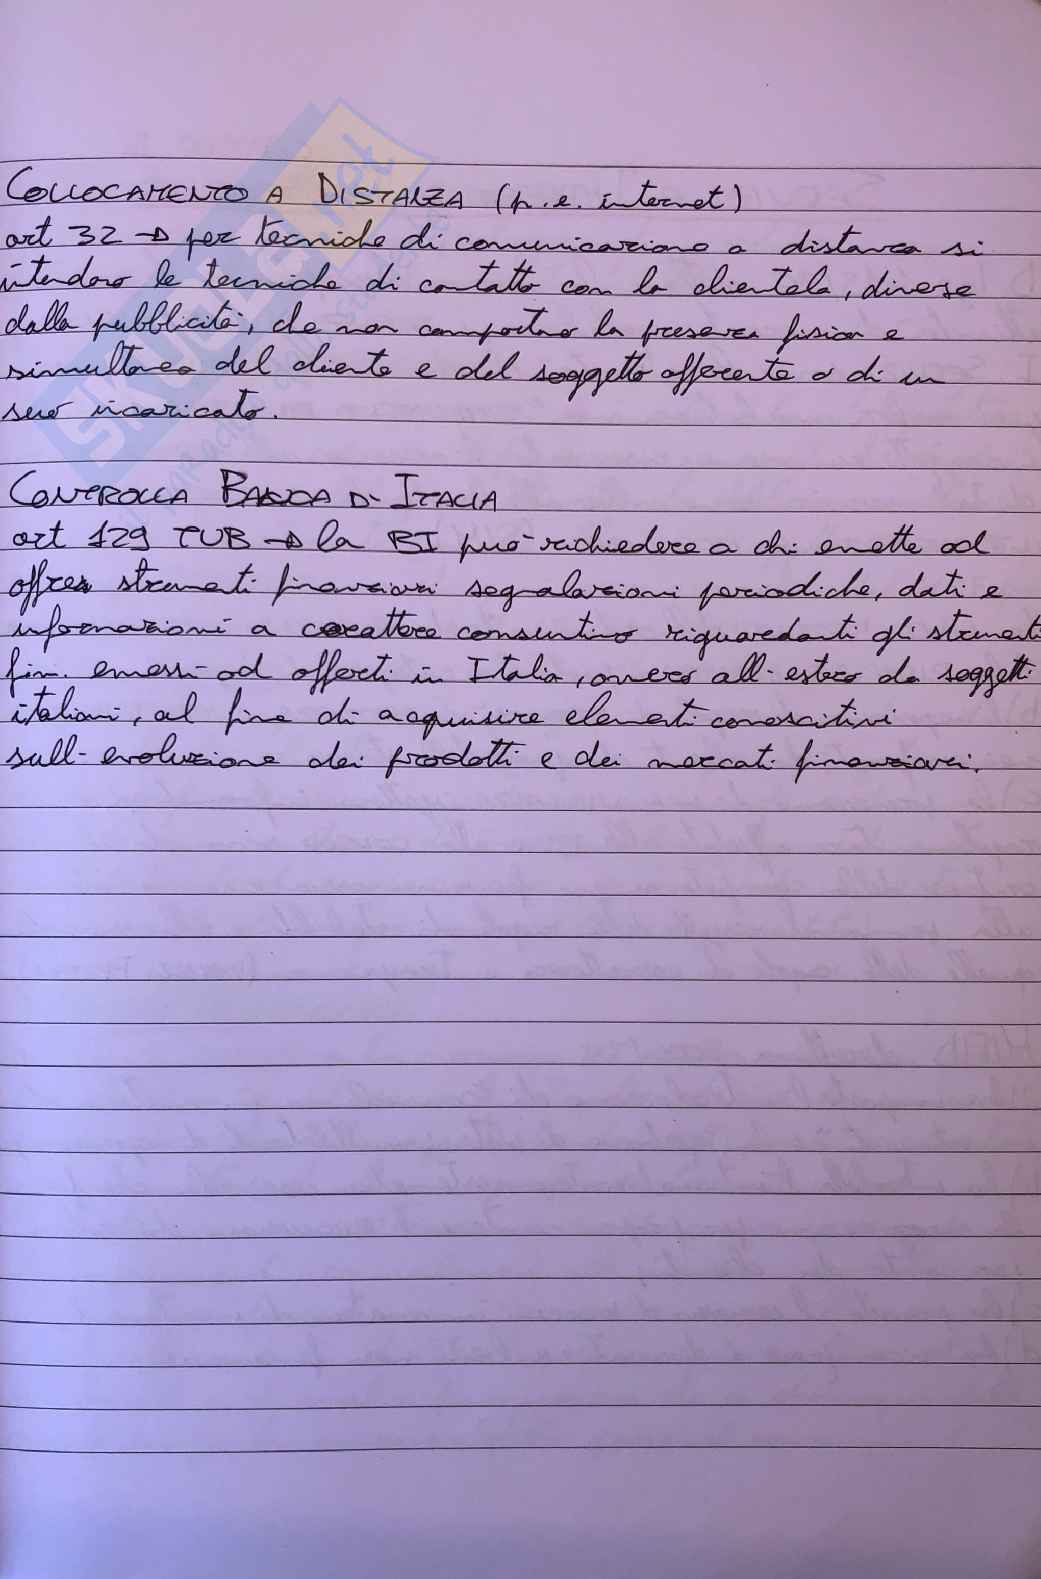 COLLOCAMENTO A DISTANZA (p.e. internet)
art 32 → per tecniche di comunicazione a distanza si
intendono le tecniche di contatto con la clientela, diverse
dalla pubblicità, che non comportano la presenza fisica e
simultanea del cliente e del soggetto offerente o di un
suo incaricato.
CONTROLLA BANCA D'ITALIA
art 129 TUB → la BI può richiedere a chi emette od
offre strumenti finanziari segnalazioni periodiche, dati e
informazioni a carattere consuntivo riguardanti gli strumenti
fin. emessi od offerti in Italia, ovvero all'estero da soggetti
italiani, al fine di acquisire elementi conoscitivi
sull'evoluzione dei prodotti e dei mercati finanziari.